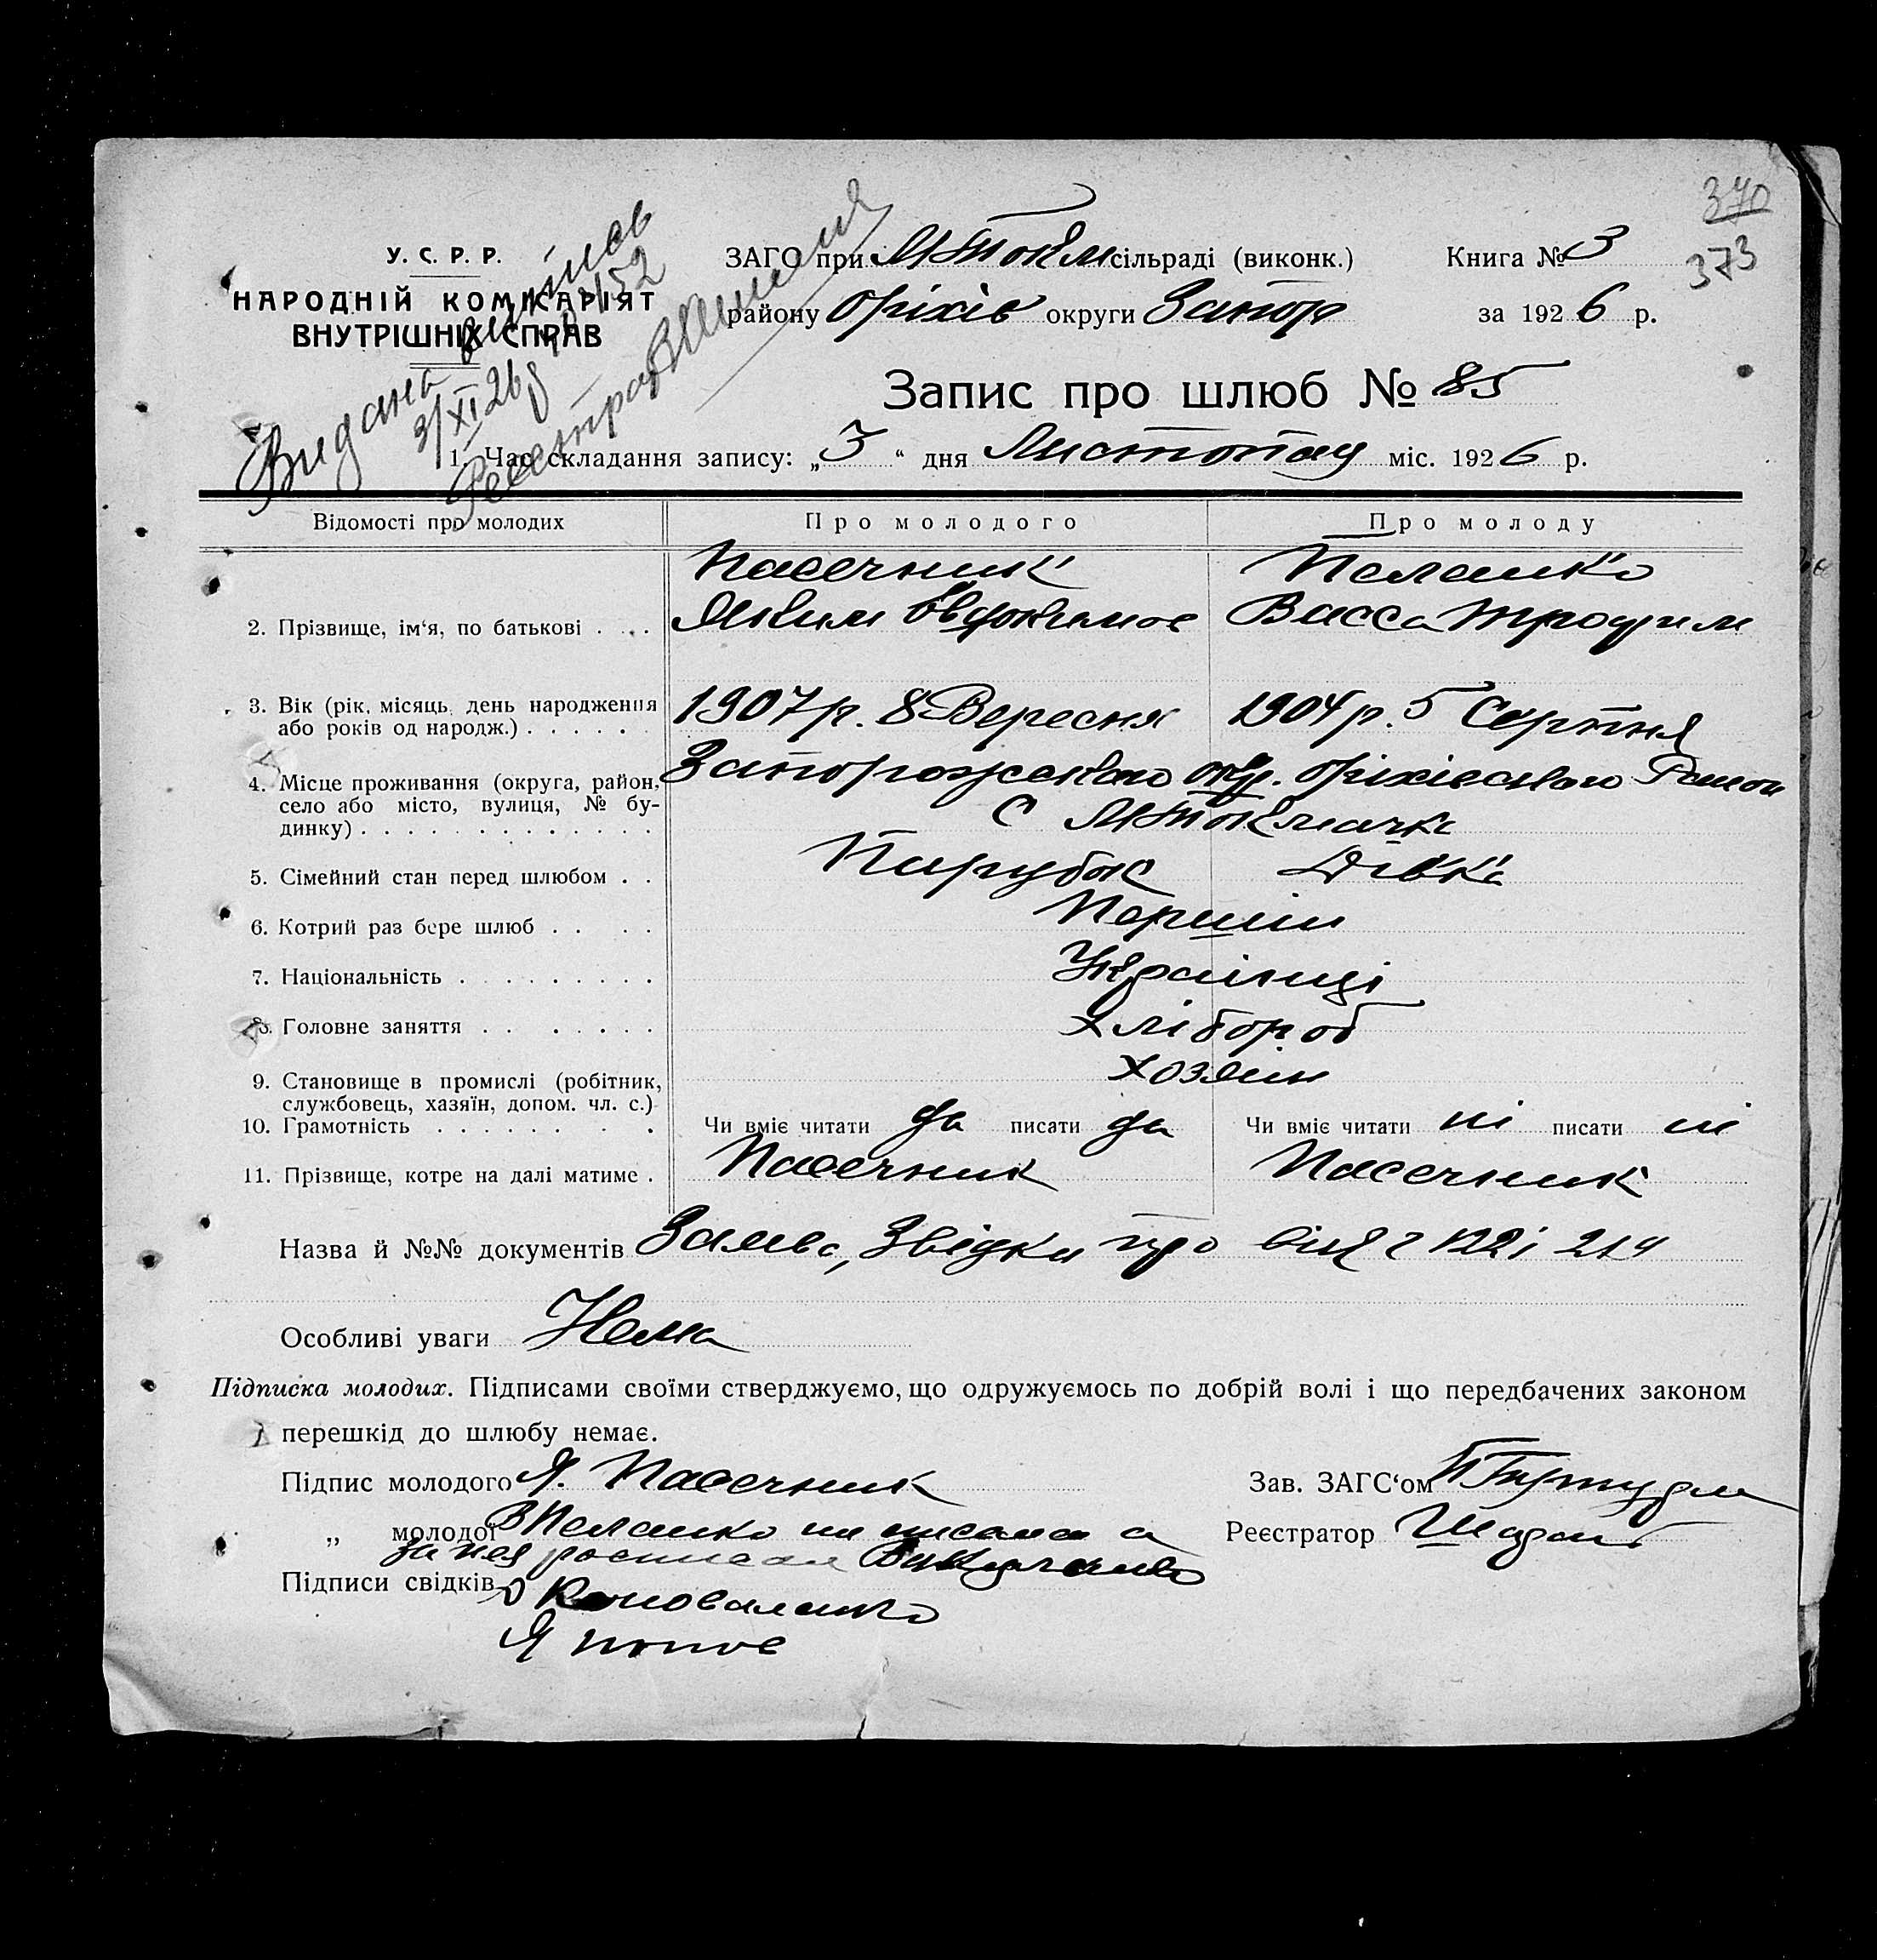 370
373
У. С. Р. Р.
НАРОДНІЙ КОМІСАРІЯТ
ВНУТРІШНІХ СПРАВ
Видана выпись
3/XI 26 р № 452
ЗАГС при МТокм сільраді (виконк.) Книга № 3
району Оріхів округи Запор за 1926 р.
Запис про шлюб № 85
1. Час складання запису: „3“ дня Листопад міс. 1926 р.
Відомості про молодих Про молодого Про молоду
Пасечник Пелашко
2. Прізвище, ім‘я, по батькові . . . Яким Овдокимов Васса Трофим
3. Вік (рік, місяць, день народження
або років од народж.) . . . . . . 1907 р. 8 Вересня 1904 р. 5 Серпня
4. Місце проживання (округа, район, Запорожського окр. Оріхівського Район
село або місто, вулиця, № бу-
динку) . . . . . . . . . . . . . С МТокмачка
5. Сімейний стан перед шлюбом . . Парубок Дівка
6. Котрий раз бере шлюб . . . . Перший
7. Національність . . . . . . . . . Українці
8. Головне заняття . . . . . . . Хлібороб
9. Становище в промислі (робітник, Хозяин
службовець, хазяїн, допом. чл. с.)
10. Грамотність . . . . . . . . . Чи вміє читати да писати да Чи вміє читати ні писати ні
11. Прізвище, котре на далі матиме . Пасечник Пасечник
Назва й №№ документів Заява, Звідки про
Особливі уваги Нема
Підписка молодих. Підписами своїми стверджуємо, що одружуємось по добрій волі і що передбачених законом
перешкід до шлюбу немає.
Підпис молодого Я. Пасечник Зав. ЗАГС‘ом
„ молодої В Пелашко не писана а Реєстратор
за нея росписал
Підписи свідків Коноваленко
Я Попов